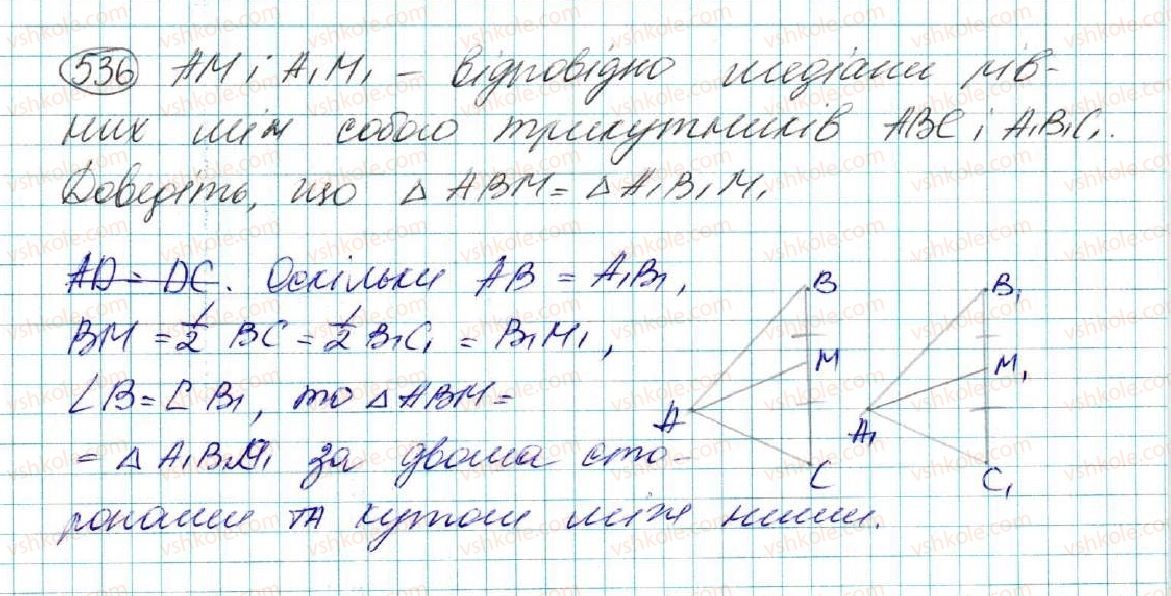 536 AM і A₁M₁ – відповідно медіани рів-
них між собою трикутників ABC і A₁B₁C₁.
Доведіть, що △ ABM = △ A₁B₁M₁
AD = DC. Оскільки AB = A₁B₁,
BM = 1/2 BC = 1/2 B₁C₁ = B₁M₁,
∠B = ∠B₁, то △ABM =
= △ A₁B₁M₁ за двома сто-
ронами та кутом між ними.
B B₁
M M₁
A A₁
C C₁